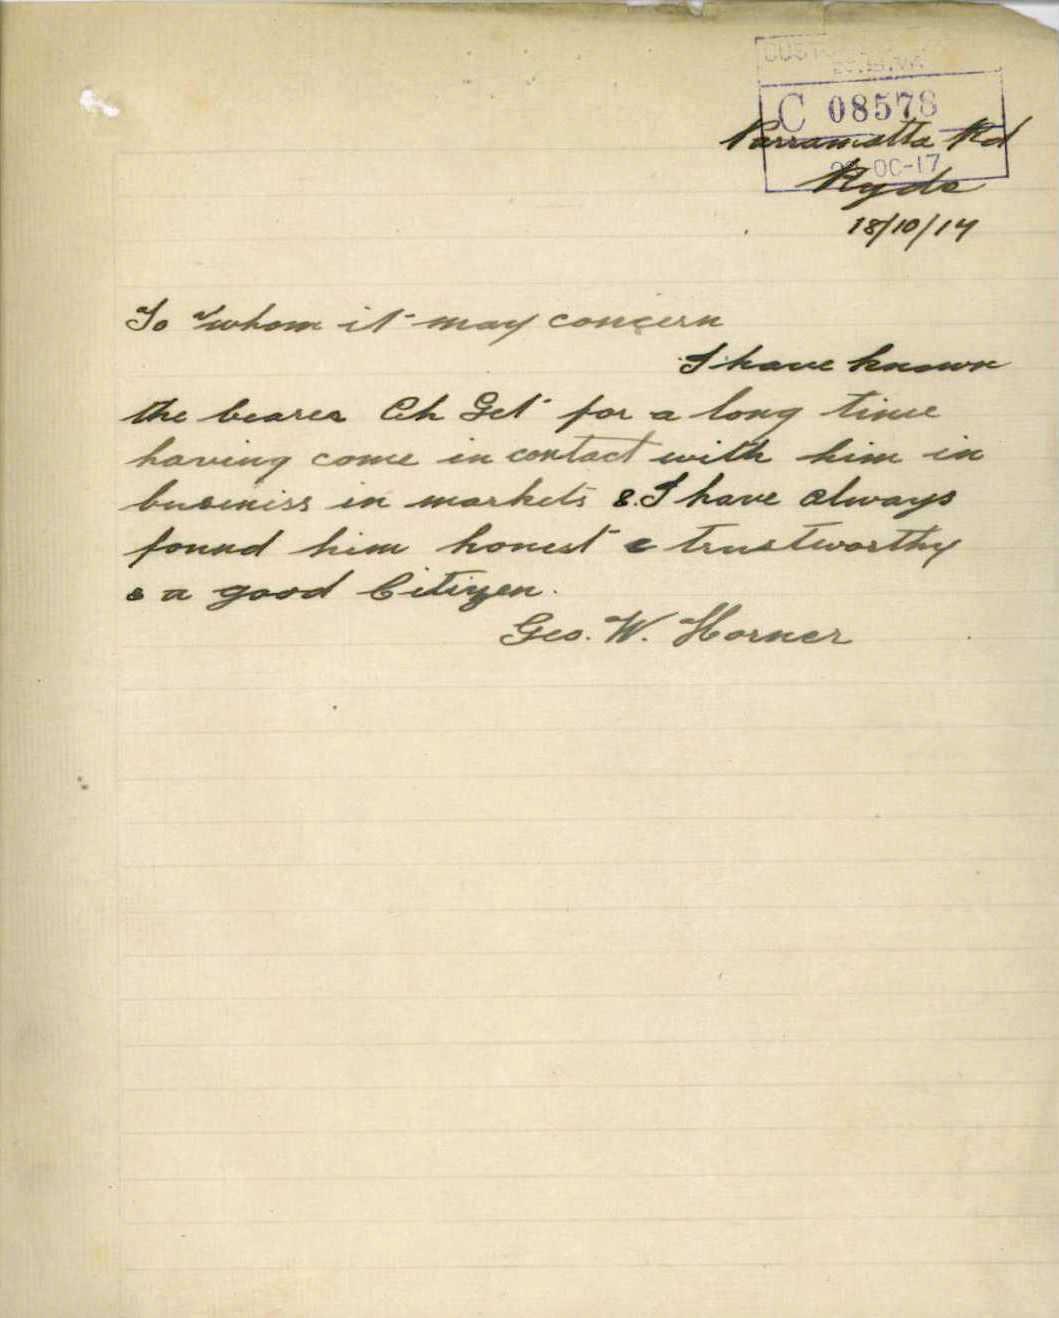 C 08578
Parramatta Rd
OC-17
Ryde
18/10/17
To whom it may concern
I have known
the bearer Ah Get for a long time
having come in contact with him in
business in markets & I have always
found him honest & trustworthy
& a good Citizen.
Geo. W. Horner